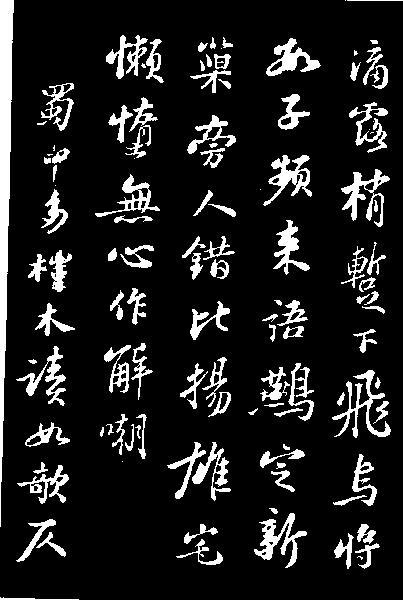 滴露梢蹔下飛烏將
數子頻来語鷰定新
巢旁人錯比揚雄宅
懶憧無心作解嘲
蜀中多榿木讀如欹仄